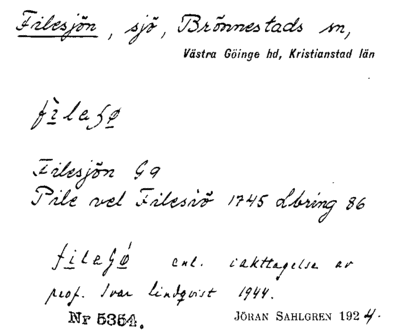 Filesjön, sjö, Brönnestads sn,
Västra Göinge hd, Kristianstad län
Filesjön G9
Pile vel Filesiö 1745 Lbring 86
enl. iakttagelse av
prof. Ivar Lindqvist 1944.
Nr 5354. JÖRAN SAHLGREN 1924.